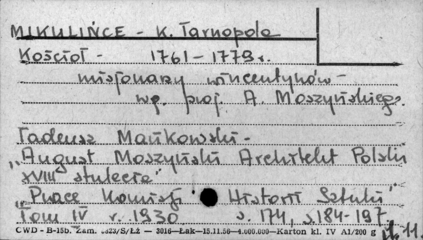 MIKULIŃCE - K. Tarnopola
Kościół - 1761-1779 r.
misjonarzy wincentynów -
wg. proj. A. Moszyńskiego.
Tadeusz Mańkowski -
„August Moszyński Architekt Polski
XVIII stulecia"
„Prace Komisji Historii Sztuki"
Tom IV r. 1930 s. 174, s. 184-197
CWD - B-15b. Zam. S/Łż - 3016-Łak-15.11.56-4.000.000-Karton kl. IV A1/200 g